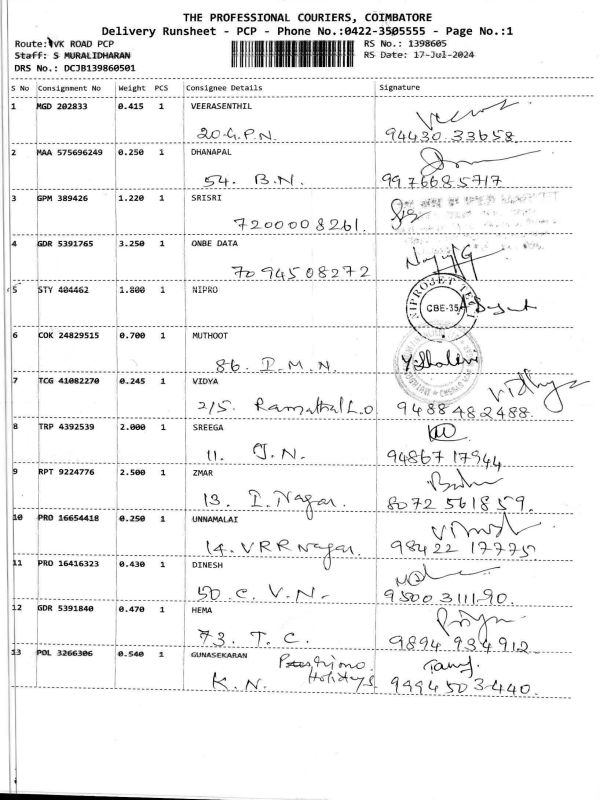 THE PROFESSIONAL COURIERS, COIMBATORE
Delivery Runsheet - PCP - Phone No.:0422-3505555 - Page No.:1
Route: VK ROAD PCP RS No.: 1398605
Staff: S MURALIDHARAN RS Date: 17-Jul-2024
DRS No.: DCJB139860501
S No Consignment No Weight PCS Consignee Details Signature
1 MGD 202833 0.415 1 VEERASENTHIL
20-G.P.N. 94430 33658
2 MAA 575696249 0.250 1 DHANAPAL
54. B.N. 9976685717
3 GPM 389426 1.220 1 SRISRI
7200008261.
4 GDR 5391765 3.250 1 ONBE DATA
7094508272
5 STY 404462 1.800 1 NIPRO
NIPROJET TEC
CBE-35
6 COK 24829515 0.700 1 MUTHOOT
86. I.M.N. Y. Shalini
7 TCG 41082270 0.245 1 VIDYA Vidhya
2/5. Ramathal L.O 9488482488.
8 TRP 4392539 2.000 1 SREEGA
11. J.N. 94867 17944
9 RPT 9224776 2.500 1 ZMAR
13. I. Nagar. 8072 561859.
10 PRO 16654418 0.250 1 UNNAMALAI
14. V R R Nagar. 98422 17775
11 PRO 16416323 0.430 1 DINESH
50. C. V. N. 95003 111-90.
12 GDR 5391840 0.470 1 HEMA
73. T. C. 9894 934 912.
13 POL 3266306 0.540 1 GUNASEKARAN
Holidays
K. N. 9994503440.